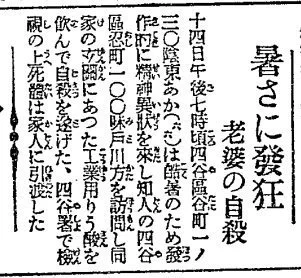 暑さに發狂
老婆の自殺
十四日午後七時頃四谷區谷町一ノ
三〇陰東あか(六〇)は酷暑のため發
作的に精神異狀を來し知人の四谷
區忍町一〇〇味戸川方を訪問し同
家の玄關にあつた工業用りう酸を
飮んで自殺を遂げた、四谷署で檢
視の上死體は家人に引渡した